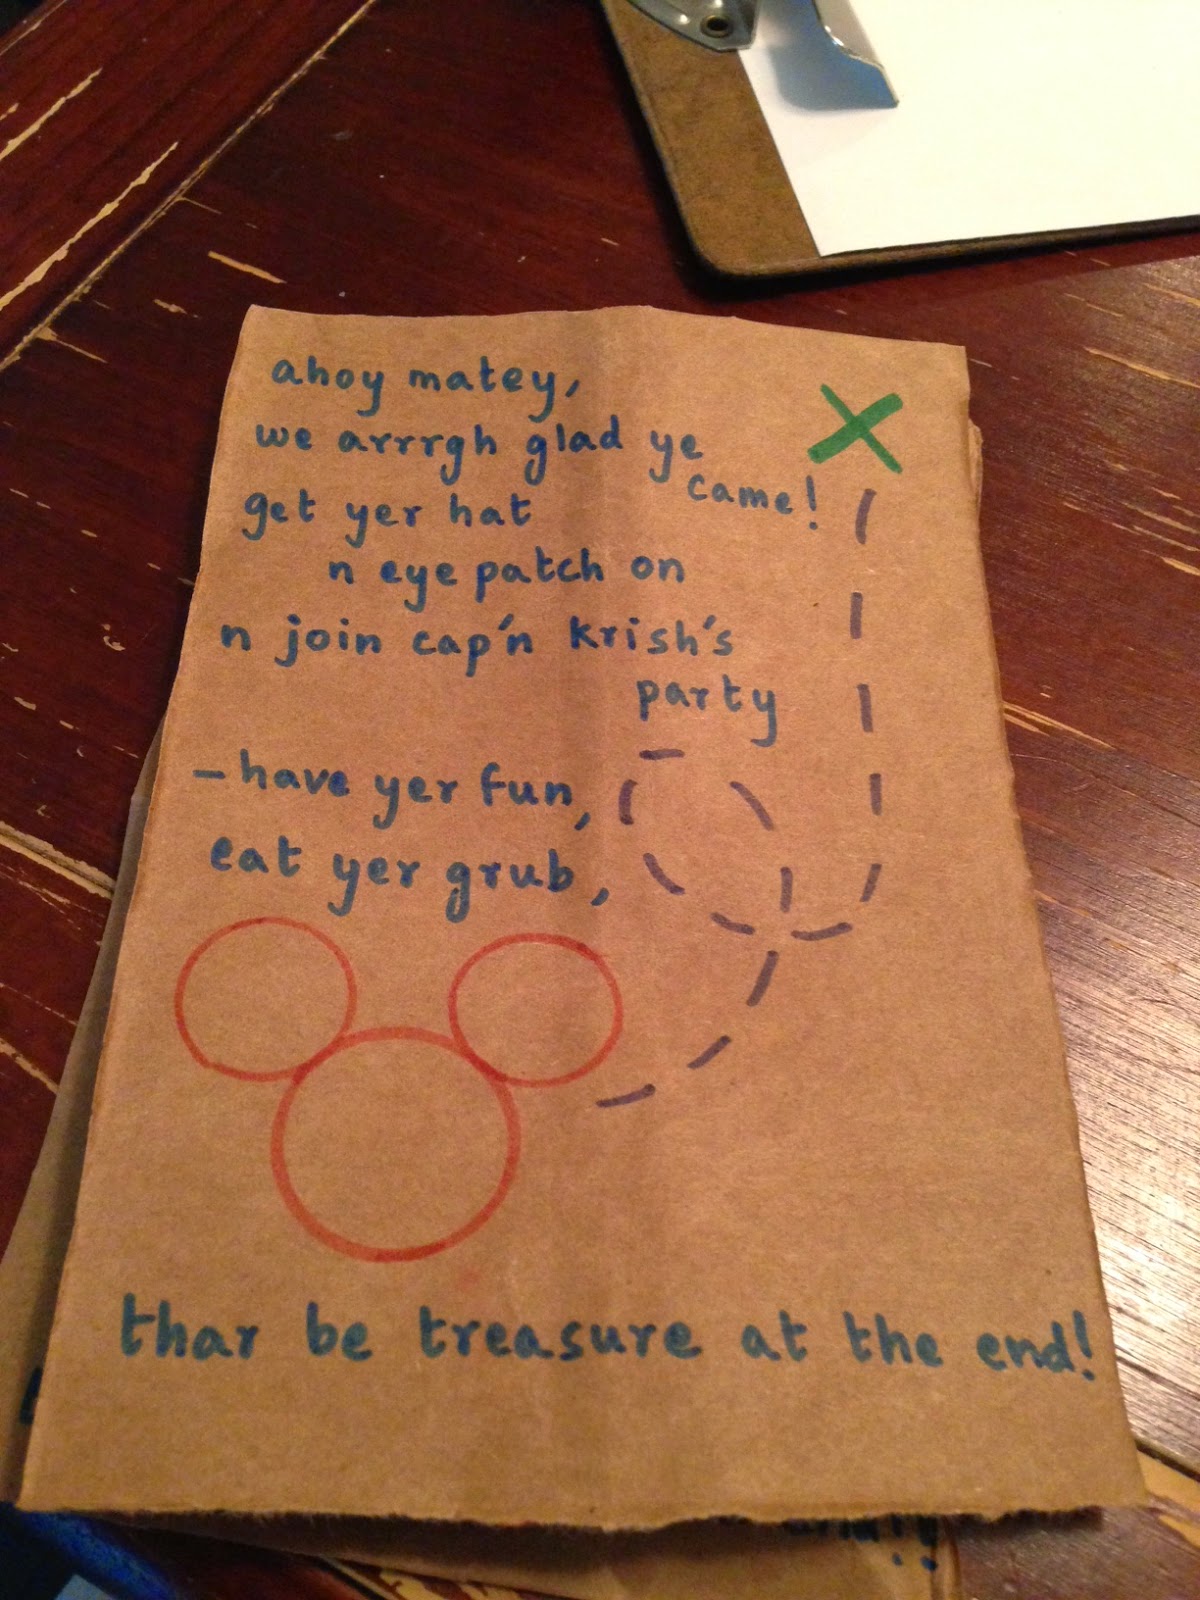 ahoy matey,
we arrrgh glad ye
came!
get yer hat
n eye patch on
n join cap'n krish's
party
– have yer fun,
eat yer grub,
thar be treasure at the end!